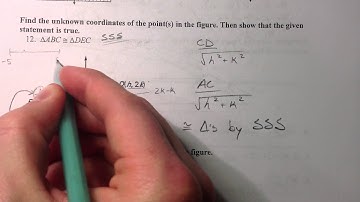 Find the unknown coordinates of the point(s) in the figure. Then show that the given
statement is true.
12. ΔABC ≅ ΔDEC SSS
CD
-5
√h² + k²
(h, 2k) 2k-k
AC
√h² + k²
≅ Δ's by SSS
figure.